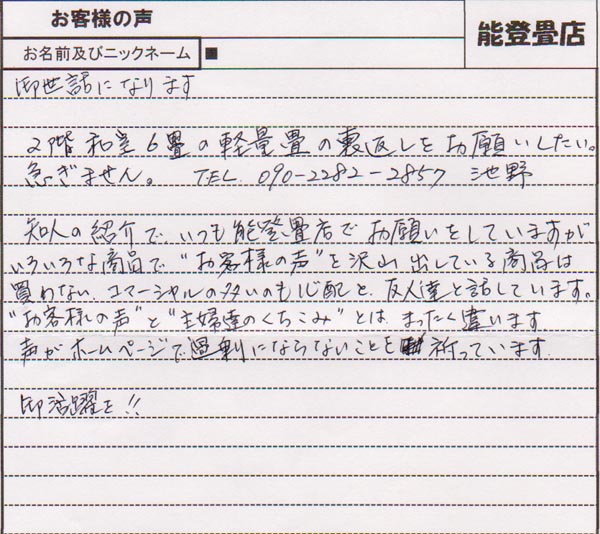 お客様の声
能登畳店
お名前及びニックネーム ■
御世話になります
2階和室6畳の軽量畳の裏返しをお願いしたい。
急ぎません。 TEL 090-2282-2857 池野
知人の紹介で、いつも能登畳店でお願いをしていますが
いろいろな商品で"お客様の声"を沢山出している商品は
買わない、コマーシャルの多いのも心配と、友人達と話しています。
"お客様の声"と"主婦達のくちこみ"とは、まったく違います
声がホームページで過剰にならないことを祈っています
御活躍を!!